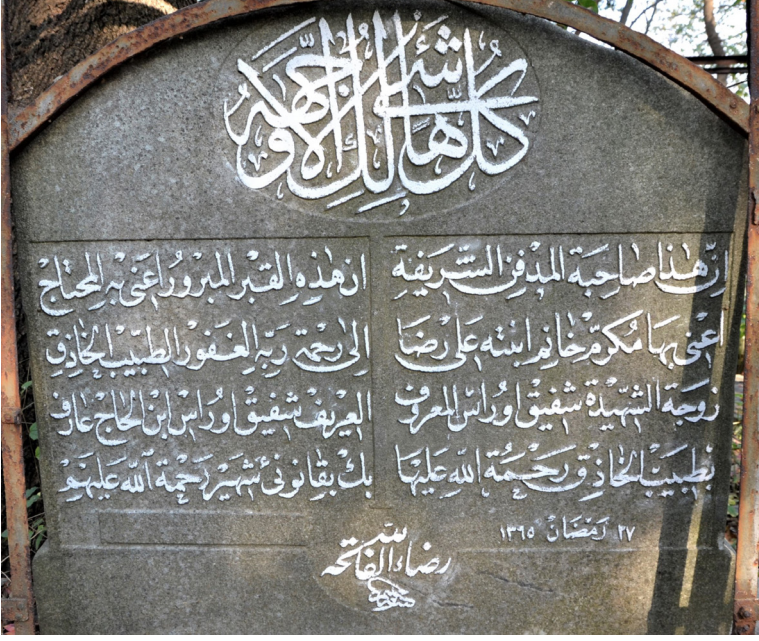 كُلُّ شَيْءٍ هَالِكٌ إِلَّا وَجْهَهُ
اِنّ هٰذا صَاحِبَة المَدْفَنِ الشَّرِيفَةِ
اَعْنى بِهَا مُكَرّمْ خَانِم ابنته عَلى رِضَا
زَوجَة الشهِيْدَة شَفِيق اورَاسْ المَعرُوف
بطبيب الحَاذِق رَحْمَةُ اللهِ عَلَيْهَا
ان هٰذِهِ القبْر المبرُورُ اعنى بِهِ المحتاج
الى رحمة رَبّهِ الغفُور الطبيب الحَاذِق
العِريف شفيق اورَاسْ ابن الحَاج عَارف
بك بقَانونى شهيْر رَحمَة الله عَليْهِمْ
٢٧ رَمَضَان ١٣٦٥
رضاء لله الفاتحه